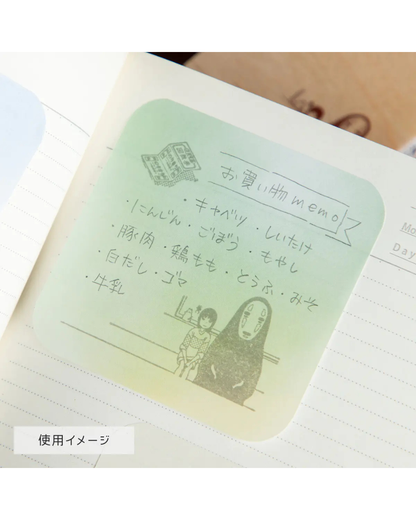 お買い物memo
・キャベツ・しいたけ
・にんじん・ごぼう・もやし
・豚肉・鶏もも・とうふ・みそ
・白だし・ゴマ
・牛乳
Day
使用イメージ